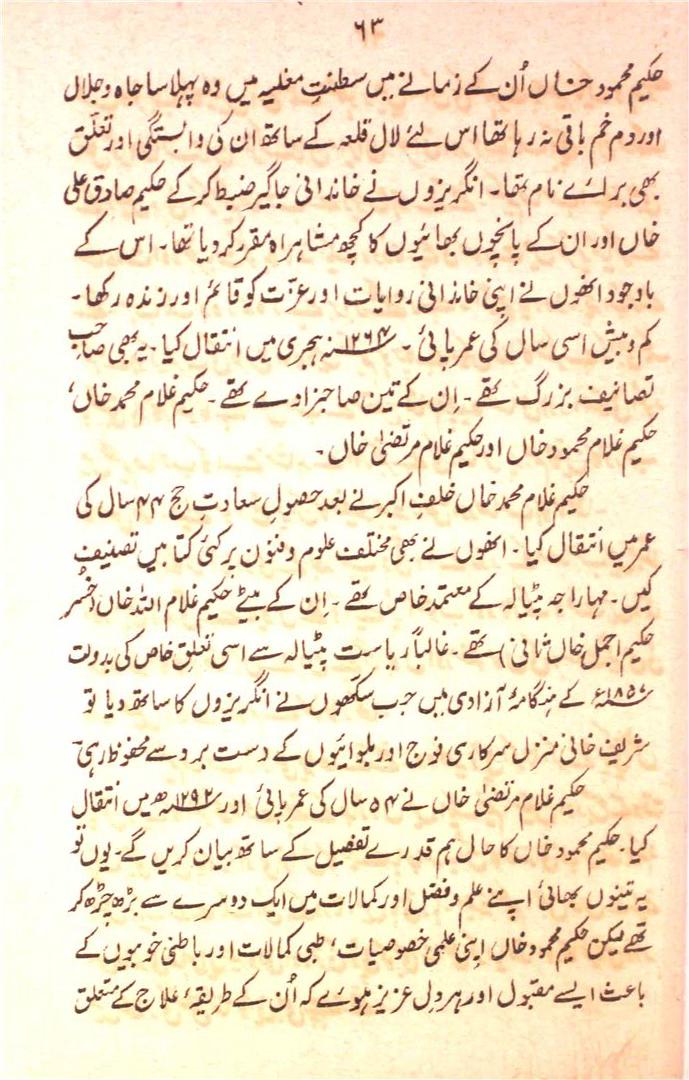 ۶۳
حکیم محمود خاں اُن کے زمانے میں سطنتِ مغلیہ میں وہ پہلا سا جاہ و جلال
اور دم خم باقی نہ رہا تھا اس لئے لال قلعہ کے ساتھ ان کی وابستگی اور تعلّق
بھی برائے نام تھا۔ انگریزوں نے خاندانی جاگیر ضبط کرکے حکیم صادق علی
خاں اور ان کے پانچوں بھائیوں کا کچھ مشاہراہ مقرر کردیا تھا۔ اس کے
باوجود انھوں نے اپنی خاندانی روایات اور عزّت کو قائم اور زندہ رکھا۔
کم و بیش اسی سال کی عمر پائی۔ ۱۲۶۴؁ ہجری میں انتقال کیا۔ یہ بھی صاحبِ
تصانیف بزرگ تھے۔ اِن کے تین صاحبزادے تھے۔ حکیم غلام محمد خاں،
حکیم غلام محمود خاں اور حکیم غلام مرتضیٰ خاں۔
حکیم غلام محمد خاں خلفِ اکبر نے بعد حصولِ سعادتِ حج ۴۴ سال کی
عمر میں انتقال کیا۔ انھوں نے بھی مختلف علوم و فنون پر کئی کتابیں تصنیف
کیں۔ مہاراجہ پٹیالہ کے معتمد خاص تھے۔ اِن کے بیٹے حکیم غلام اللہ خاں (خُسر
حکیم اجمل خاں ثانی) تھے۔ غالباً ریاست پٹیالہ سے اسی تعلقِ خاص کی بدولت
۱۸۵۷؁ء کے ہنگامۂ آزادی میں جب سکھوں نے انگریزوں کا ساتھ دیا تو
شریف خانی منزل سرکاری فوج اور بلوائیوں کے دست برد سے محفوظ رہی۔
حکیم غلام مرتضیٰ خاں نے ۵۴ سال کی عمر پائی اور ۱۲۹۲؁ھ میں انتقال
کیا۔ حکیم محمود خاں کا حال ہم قدرے تفصیل کے ساتھ بیان کریں گے۔ یوں تو
یہ تینوں بھائی اپنے علم و فضل اور کمالات میں ایک دوسرے سے بڑھ چڑھ کر
تھے لیکن حکیم محمود خاں اپنی علمی خصوصیات، طبی کمالات اور باطنی خوبیوں کے
باعث ایسے مقبول اور ہر دل عزیز ہوئے کہ اُن کے طریقۂ علاج کے متعلق